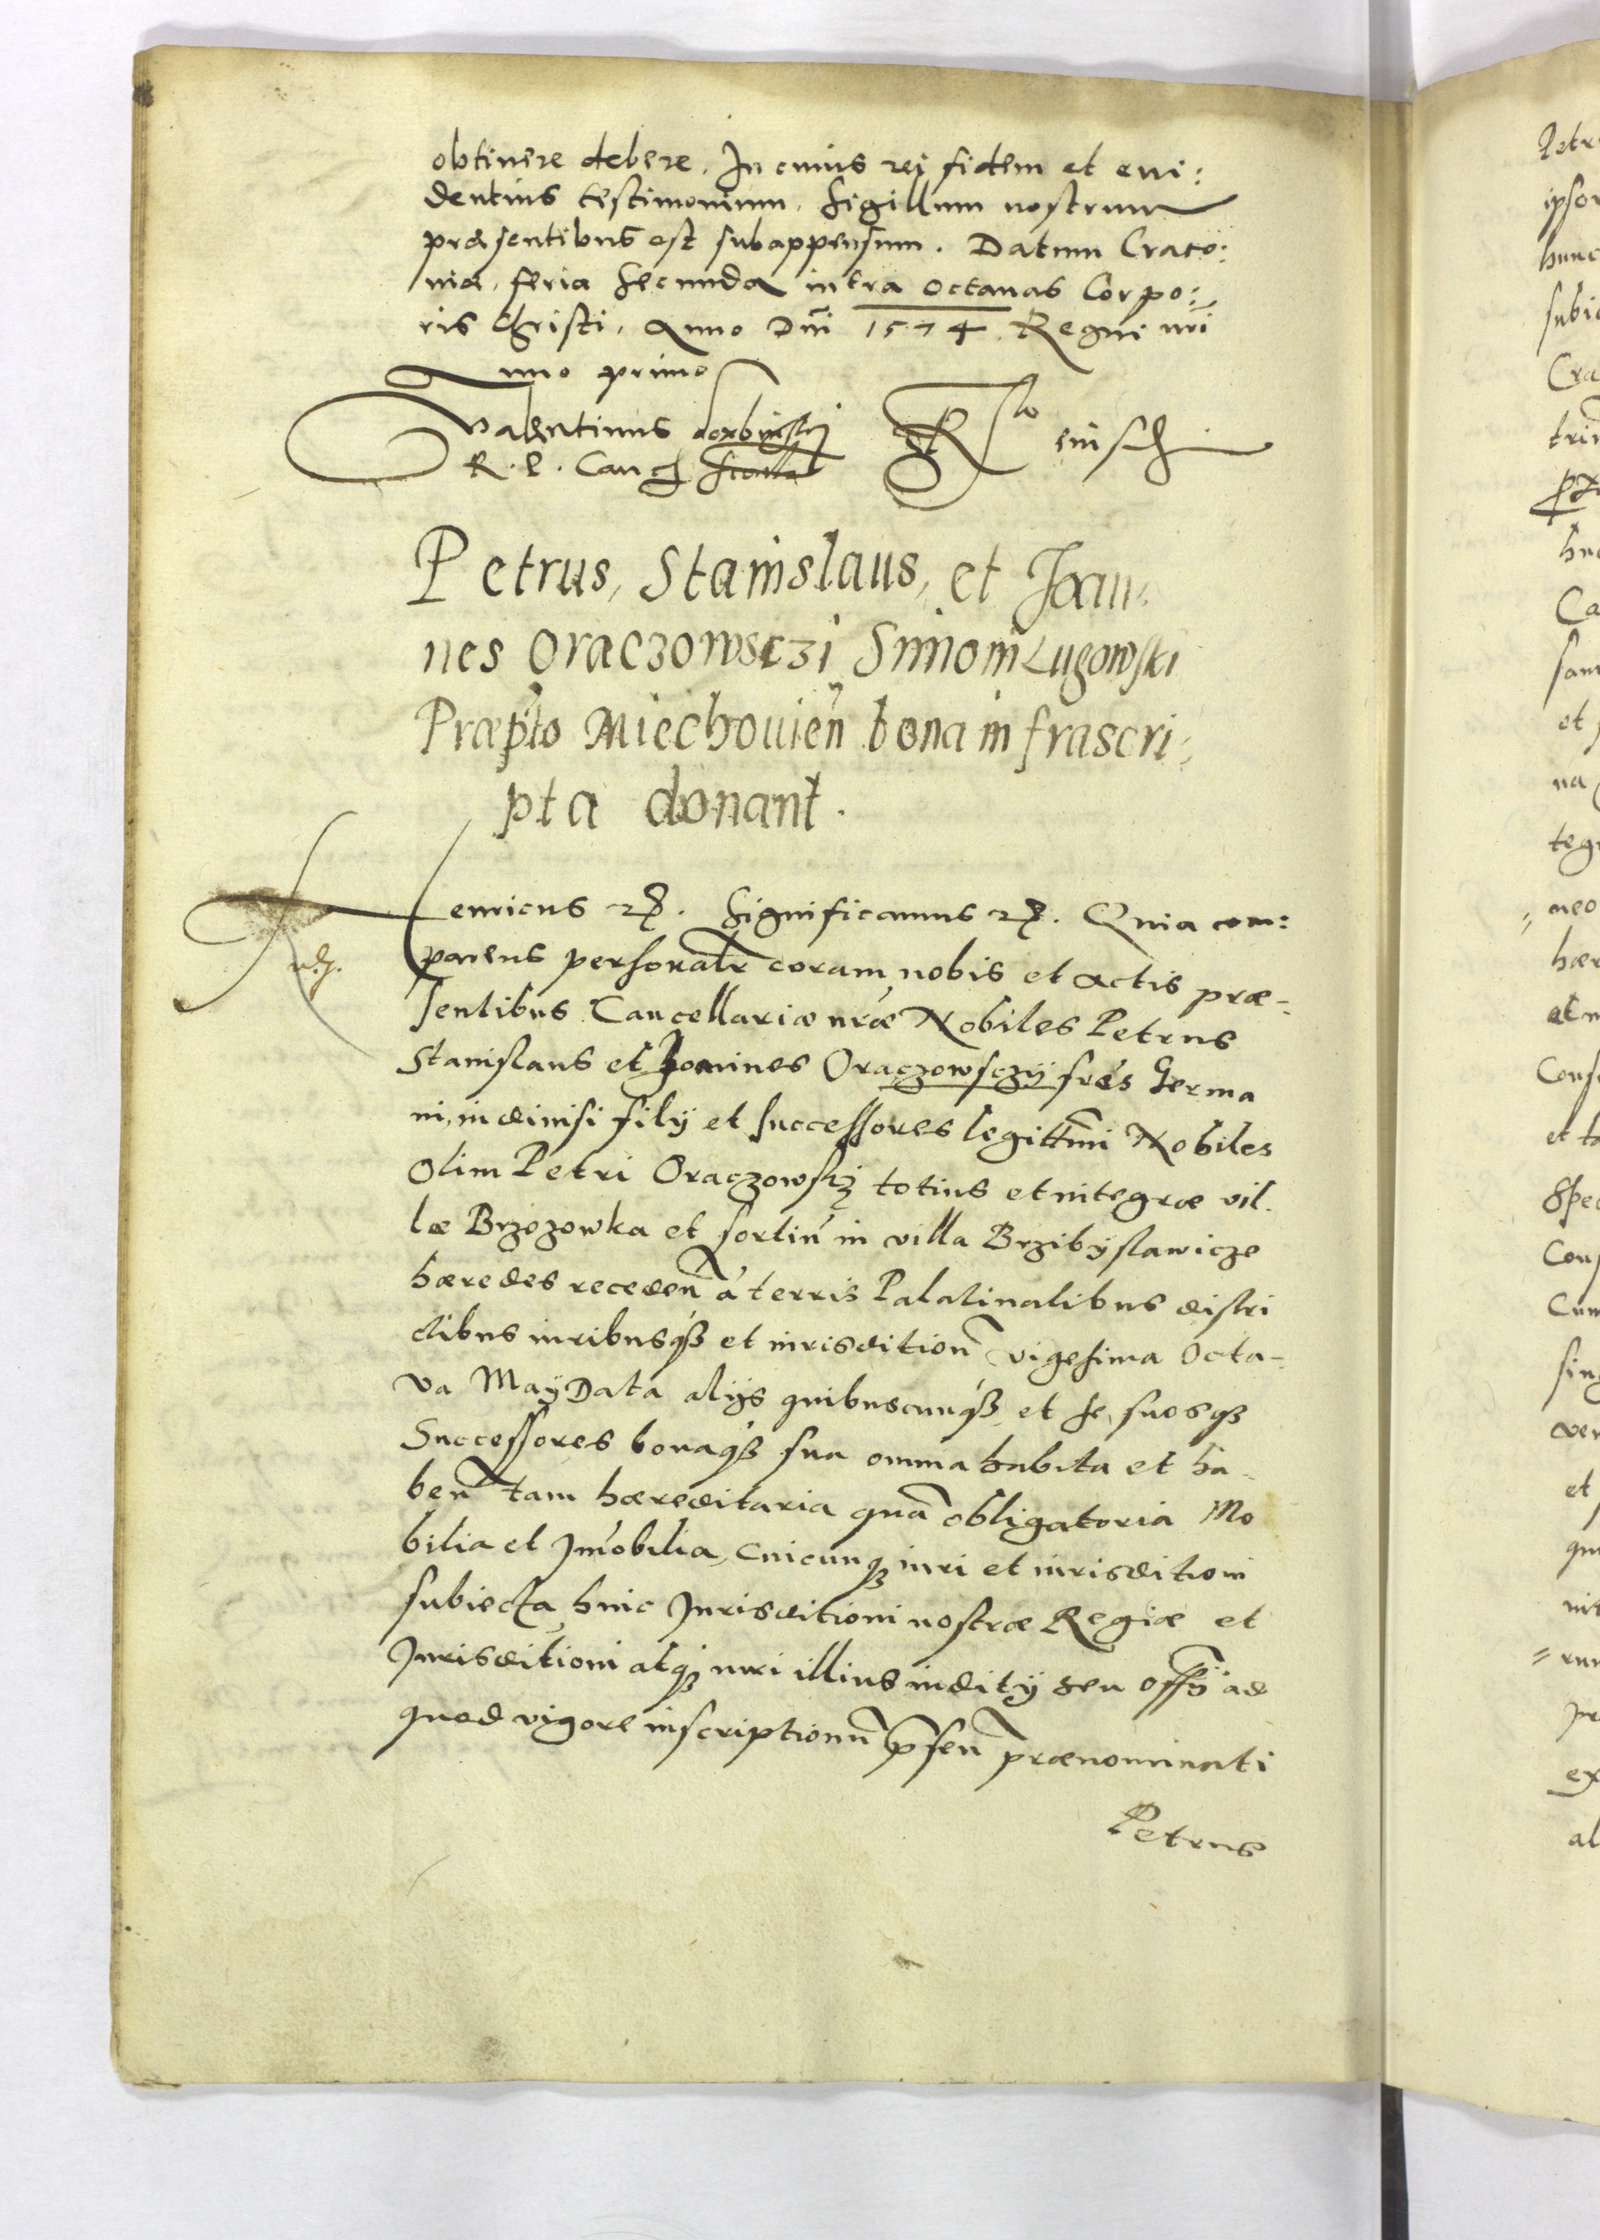 obtinere debere. In cuius rei fidem et evi:
dentius testimonium, Sigillum nostrum
præsentibus est subappensum. Datum Craco:
niæ, feria Secunda intra octauas Corpo:
ris Christi, Anno Dñi 1574. Regni nri
Anno primo
Valentinus dembinskj
R. P. Canc
Petrus, Stanislaus, et Joan:
nes Oraczowsczi Simoni Lugowski
Præpto Miechouien bona infrascri:
pta donant.
Henricus Significamus Quia com:
parens personalr coram nobis et Actis præ-
sentibus Cancellariæ nræ Nobiles Petrus
Stanislaus et Joannes Oraczowsczÿ frés Germa
ni, indiuisi filÿ et successores legittimi Nobiles
Olim Petri Oraczowskj totius et integræ vil-
læ Brzozowka et sortiũ in villa Brzibÿslawicze
hæredes receden á terris Palatinatibus distri
ctibus iuribusqȝ et iurisdition vigesima Octa-
va Maÿ Data alÿs quibuscunqȝ et se, suosqȝ
Successores bonaqȝ sua omnia habita et ha-
ben tam hæreditaria quã obligatoria Mo
bilia et Jmobilia, cuicunqȝ iuri et iurisditioni
subiecta huic Jurisditioni nostræ Regiæ et
Jurisditioni atqȝ iuri illius inditÿ seu Offÿ ad
quod vigore inscriptionũ psen prænominati
Petrus